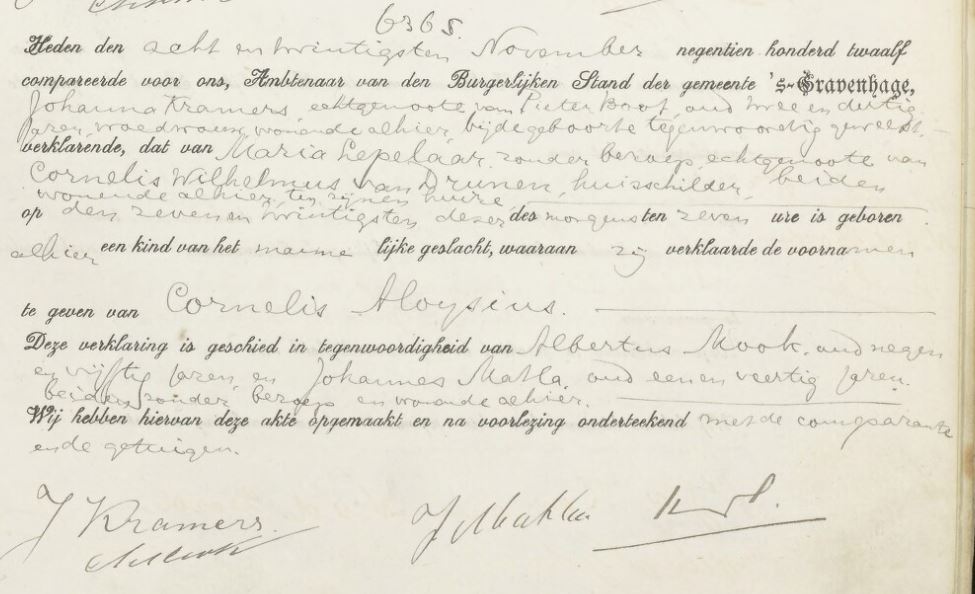 6365.
Heden den acht en twintigsten November negentien honderd twaalf
compareerde voor ons, Ambtenaar van den Burgerlijken Stand der gemeente 's-Gravenhage,
Johanna Kramers, echtgenoote van Pieter Boot, oud twee en dertig
jaren, vroedvrouw, wonende alhier, bij de geboorte tegenwoordig geweest,
verklarende, dat van Maria Lepelaar, zonder beroep, echtgenoote van
Cornelis Wilhelmus van Drunen, huisschilder, beiden
wonende alhier, ten zijnen huize
op den zeven en twintigsten dezer des morgens ten zeven ure is geboren
alhier een kind van het manne lijke geslacht, waaraan zij verklaarde de voornamen
te geven van Cornelis Aloysius.
Deze verklaring is geschied in tegenwoordigheid van Albertus Mook, oud negen
en vijftig jaren, en Johannes Matla, oud een en veertig jaren.
beiden zonder beroep en wonende alhier.
Wij hebben hiervan deze akte opgemaakt en na voorlezing onderteekend met de comparante
en de getuigen.
J Kramers. J Matla